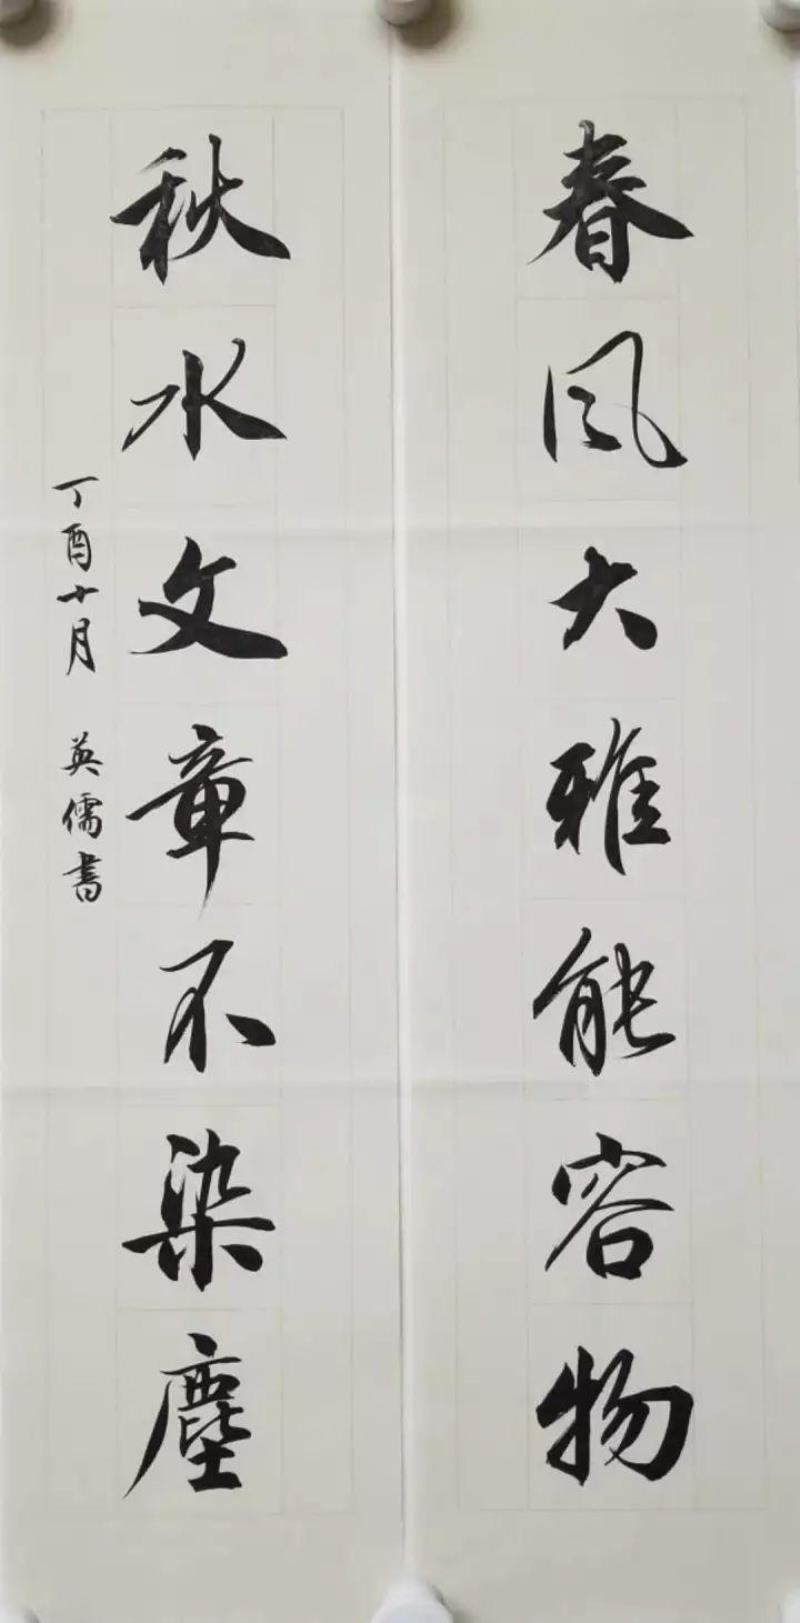 春风大雅能容物
秋水文章不染塵
丁酉十月 英儒書